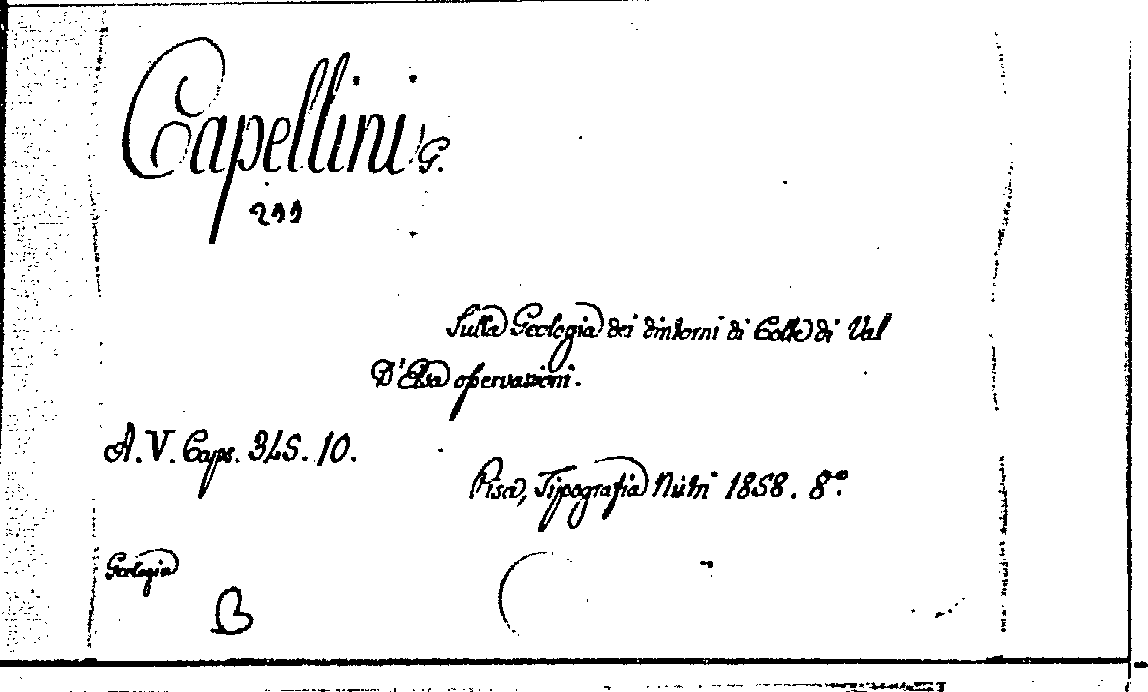 Capellini G.
299
Sulla Geologia dei dintorni di Colle di Val
D'Elsa osservazioni.
A. V. Caps. 345. 10.
Pisa, Tipografia Nistri 1858. 8º.
Geologia
B